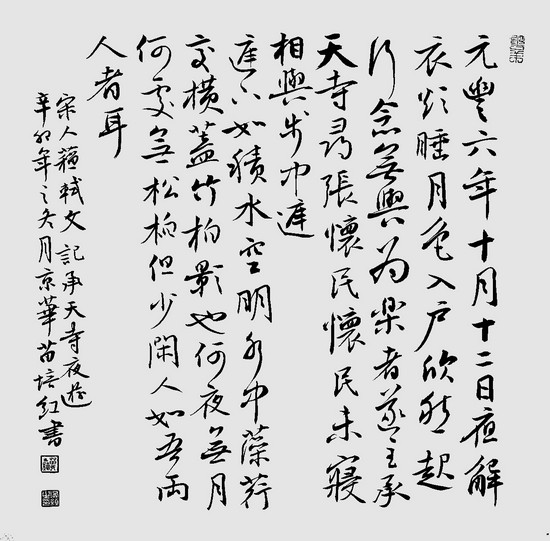 元豐六年十月十二日夜解
衣欲睡月色入戶欣然起
行念無與为樂者遂至承
天寺尋張懷民懷民未寢
相與步中庭
庭下如積水空明水中藻荇
交橫蓋竹柏影也何夜無月
何處無松柏但少閑人如吾兩
人者耳
宋人蘇軾文記承天寺夜遊
辛卯年之冬月京華苗培红書